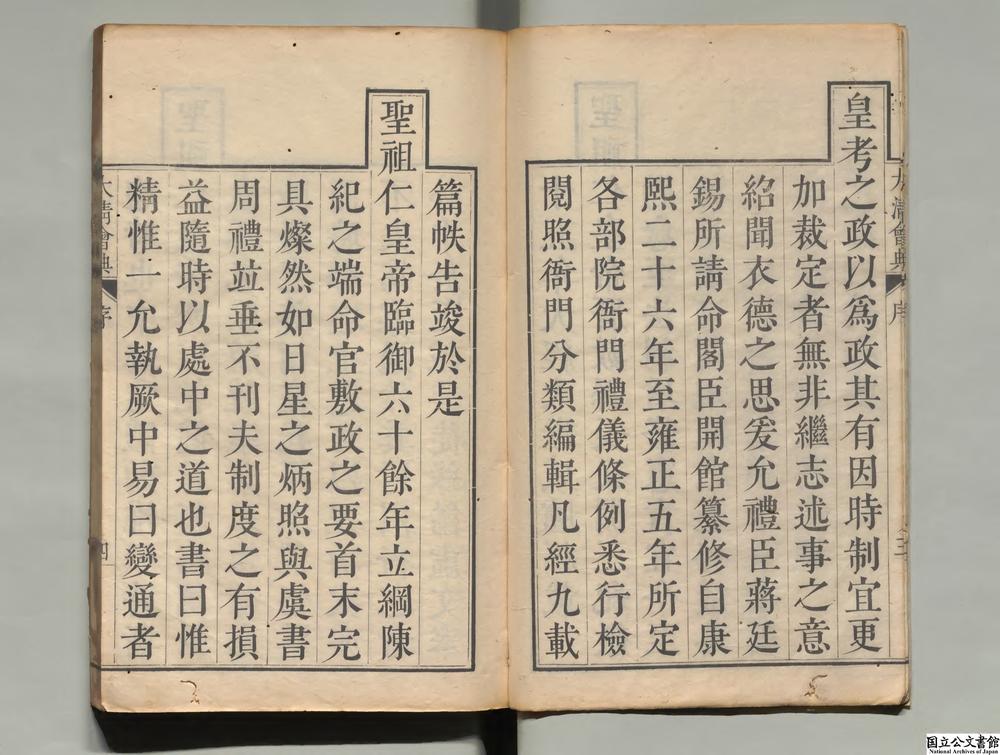 皇考之政以爲政其有因時制宜更
加裁定者無非繼志述事之意
紹聞衣德之思爰允禮臣蔣廷
錫所請命閣臣開館纂修自康
熙二十六年至雍正五年所定
各部院衙門禮儀條例悉行檢
閱照衙門分類編輯凡經九載
篇帙告竣於是
聖祖仁皇帝臨御六十餘年立綱陳
紀之端命官敷政之要首末完
具燦然如日星之炳照與虞書
周禮並垂不刊夫制度之有損
益隨時以處中之道也書曰惟
精惟一允執厥中易曰變通者
大清會典
序
四
国立公文書館
National Archives of Japan